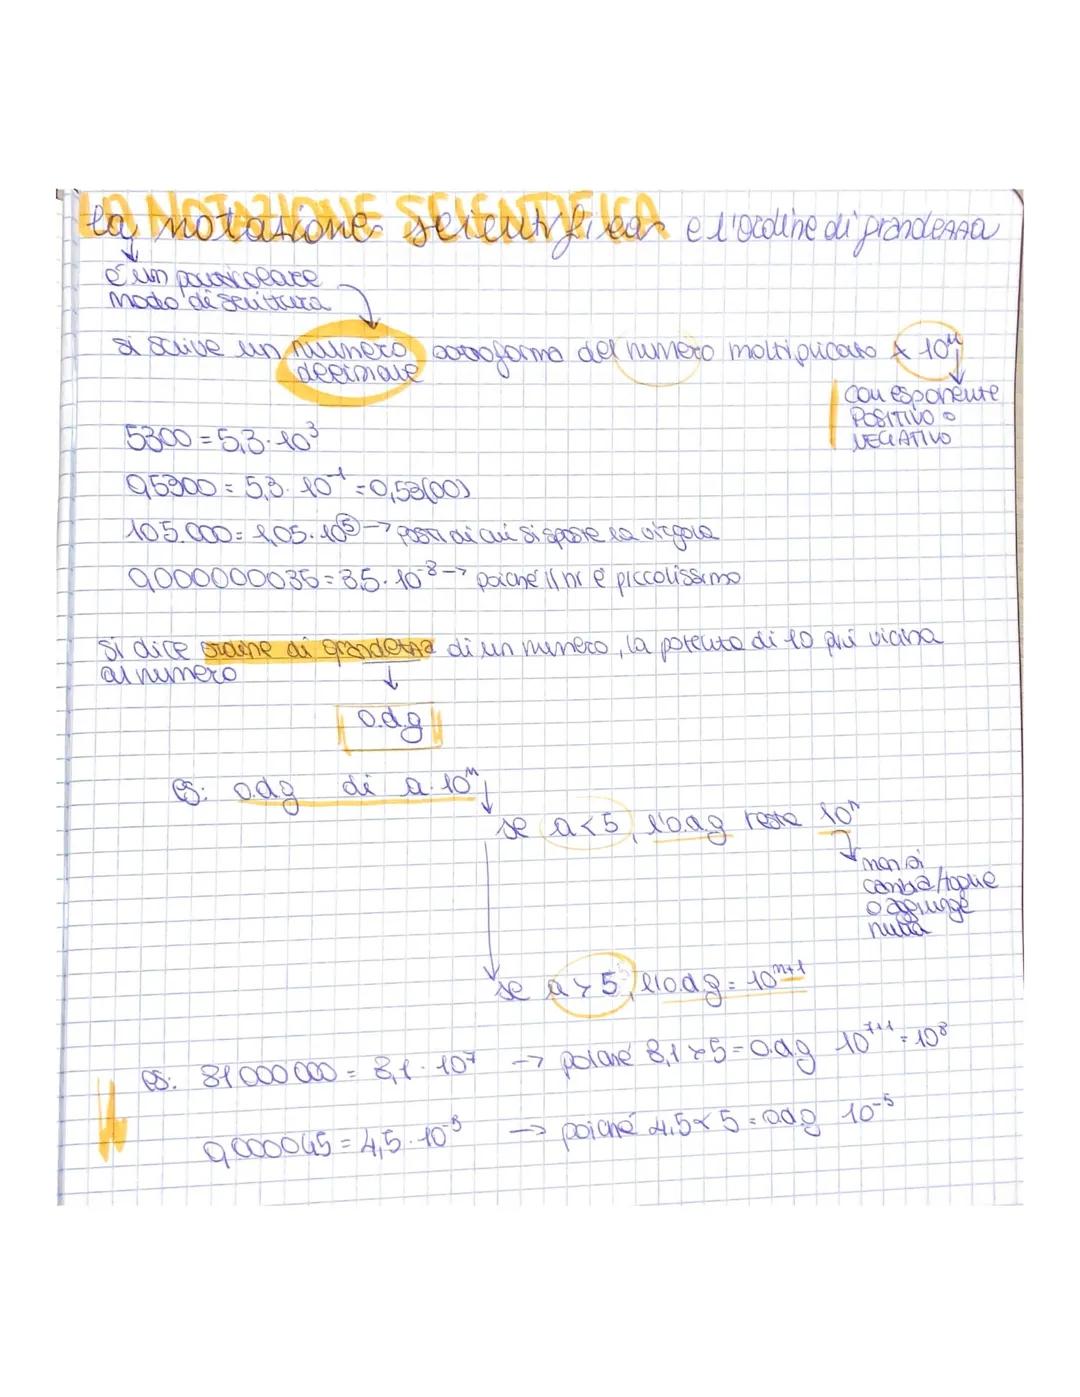 LA NOTAZIONE SCIENTIFICA
La notazione scientifica e l'ordine di grandezza
è un particolare
modo di scrittura
si scrive un numero sottoforma del numero moltiplicato x 10ⁿ
decimale
con esponente
POSITIVO o
NEGATIVO
5300 = 5,3 · 10³
0,5300 = 5,3 · 10⁻¹ = 0,53(00)
105.000 = 1,05 · 10⁵ → posti di cui si sposta la virgola
0,000000035 = 3,5 · 10⁻⁸ → poiché il nr è piccolissimo
Si dice ordine di grandezza di un numero, la potenza di 10 più vicina
al numero
o.d.g
es: o.d.g di a · 10ⁿ
se a < 5, l'o.d.g resta 10ⁿ
non si
cambia/toglie
o aggiunge
nulla
se a > 5, l'o.d.g = 10ⁿ⁺¹
es: 81000000 = 8,1 · 10⁷ → poiché 8,1 > 5 = o.d.g 10⁷⁺¹ = 10⁸
0,000045 = 4,5 · 10⁻⁵ → poiché 4,5 < 5 = o.d.g 10⁻⁵